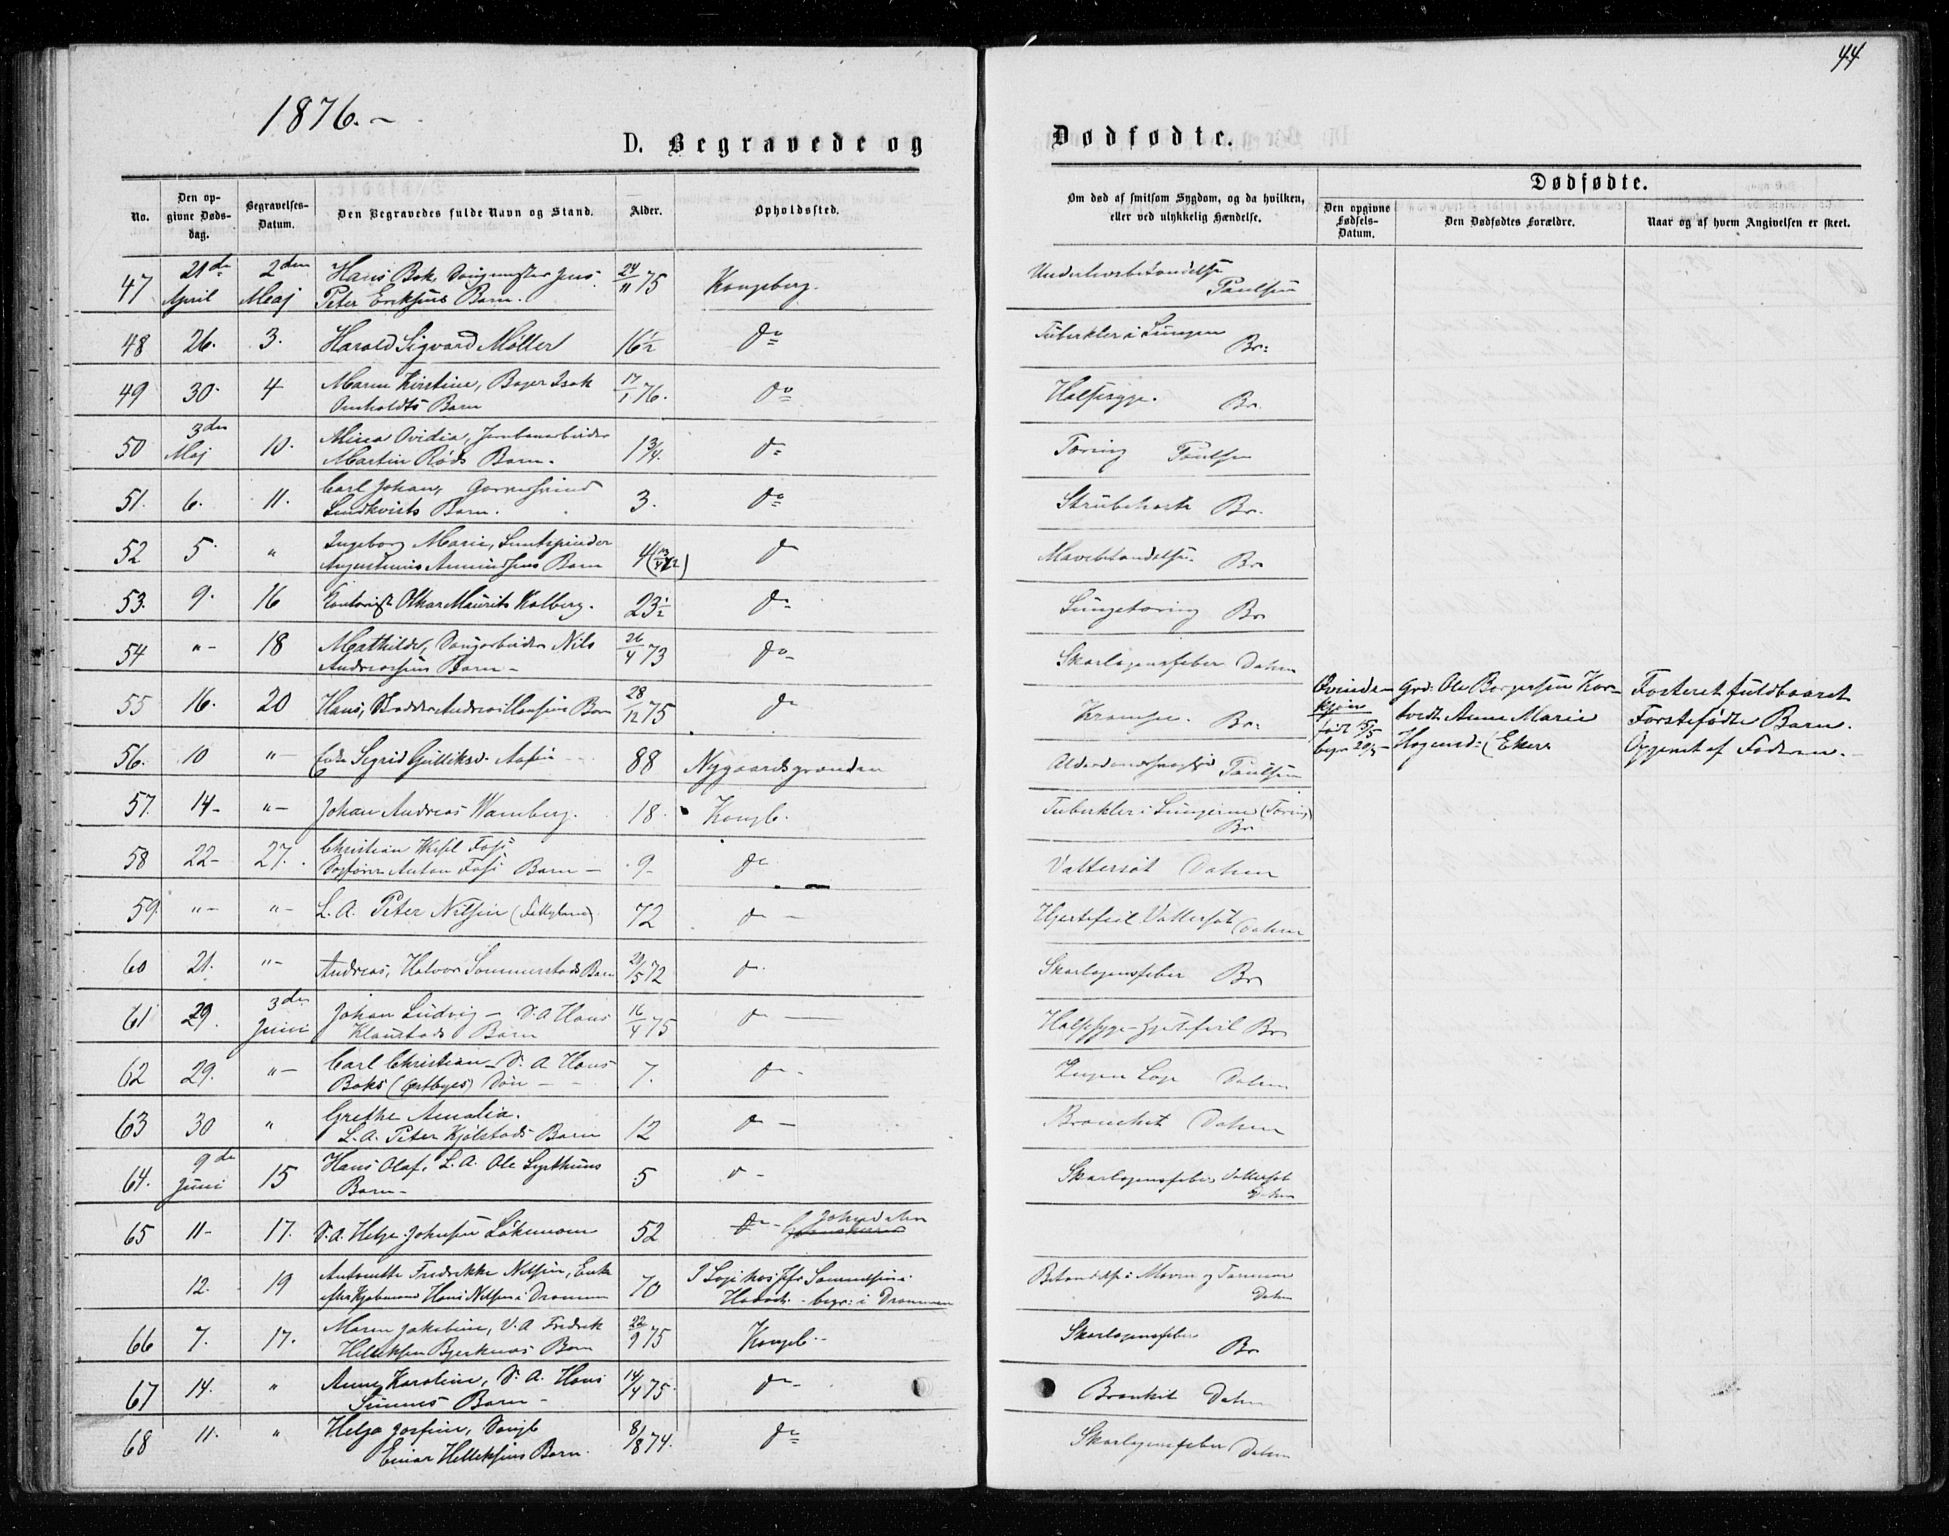 44
1876.-
D. Begravede og
Dødfødte.
No.
Den op-
givne Døds-
dag.
Begravelses-
Datum.
Den Begravedes fulde Navn og Stand.
Alder.
Opholdssted.
Om død af smitsom Sygdom, og da hvilken,
eller ved ulykkelig Hændelse.
Dødfødte.
Den opgivne
Fødsels-
Datum.
Den Dødfødtes Forældre.
Naar og af hvem Angivelsen er skeet.
47 21de April 2den Maj Hans Bok,
Peter Eriksens Barn. 24/11 75 Kongsberg. Paulsen
48 26. 3. Harald Sigvard Møller 16½ do Tuberkler i Lungen Br:
49 30. 4 Maren Kirstine, Bager Isak
Omholdts Barn 17/1 76. do Halssyge. Br.
50 3den Maj 10. Mina Ovidia, Jernbanearbeider
Martin Røds Barn. 1¾. do Tæring Paulsen
51. 6. 11. Carl Johan, Garversvend
Lindkvists Barn. 3. do Strubehoste Br.
52 5. " Ingeborg Marie,
Augustinus Amundsens Barn 4 do Mavebetændelse. Br
53. 9. 16 Kontorist Othar Maurits Kolberg. 23½ do Lungetæring Br
54 "- 18 Mathilde, Nils
Andreassens Barn - 26/4 73 do Skarlagensfeber Dahm
55 16. 20 Hans, Andreas Hansens Barn 28/12 75 do Krampe. Br:
Qvinde-
kjøn
født 15/5
begr 20/5 -
Grd: Ole Borgersen Kor-
tvedt Anne Marie
Hogensd: (Eker
Fosteret fuldbaaret
Førstefødte Barn.
Opgivet af Faderen.
56. 10 " Enke Sigrid Gulliksd. 88 Nygaardsgrænden Alderdomssvaghed Paulsen
57. 14- "- Johan Andreas Wamberg. 18. Kongb. Tuberkler i Lungerne (Tæring)
Br
58 22- 27. Christian Foss
Anton Foss Barn - 9- do Vattersot Dahm
59. "- "- L. A. Peter Nilsen 72 do - Hjertefeil Vattersot Dahm
60 21. "- Andreas, Halvor Sommerstads Barn 29/5 72 do Skarlagensfeber Br
61 29. 3de Juni Johan Ludvig - S. A Hans
Klaustads Barn 16/4 75 do - Halssyge - Hjertefeil Br
62 29. "- Carl Christian - S. A Hans
Boks Søn - 7. do - Ingen Læge Dahm
63 30 " Grethe Amalia.
L. A. Peter Kjølstads Barn 12 do - Bronchit Dahm
64. 9de Juni 15 Hans Olaf, L. A. Ole
Barn - 5 do - Skarlagensfeber Vattersot
Dahm
65 11- 17. S. A. Helge Johnsen 52 do - Johndalen
12. 19 Antonette Fredrikke Nilsen, Enke
efter Hans Nilsen i Drammen 70 begr: i Drammen Maven og Tarmene
Dahm
66 7. 17. Maren Jakobine, S. A Fredrik
Helleksen Bjerknes Barn 22/9 75 Kongsb. - Skarlagensfeber
Br
67 14. " Anne Karoline, S. A. Hans
Barn - 14/4 75. do - Bronkit Dahm
68 11. " Helga Josefine,
Einar Helleksens Barn. 8/8 74. do Skarlagensfeber Dahm